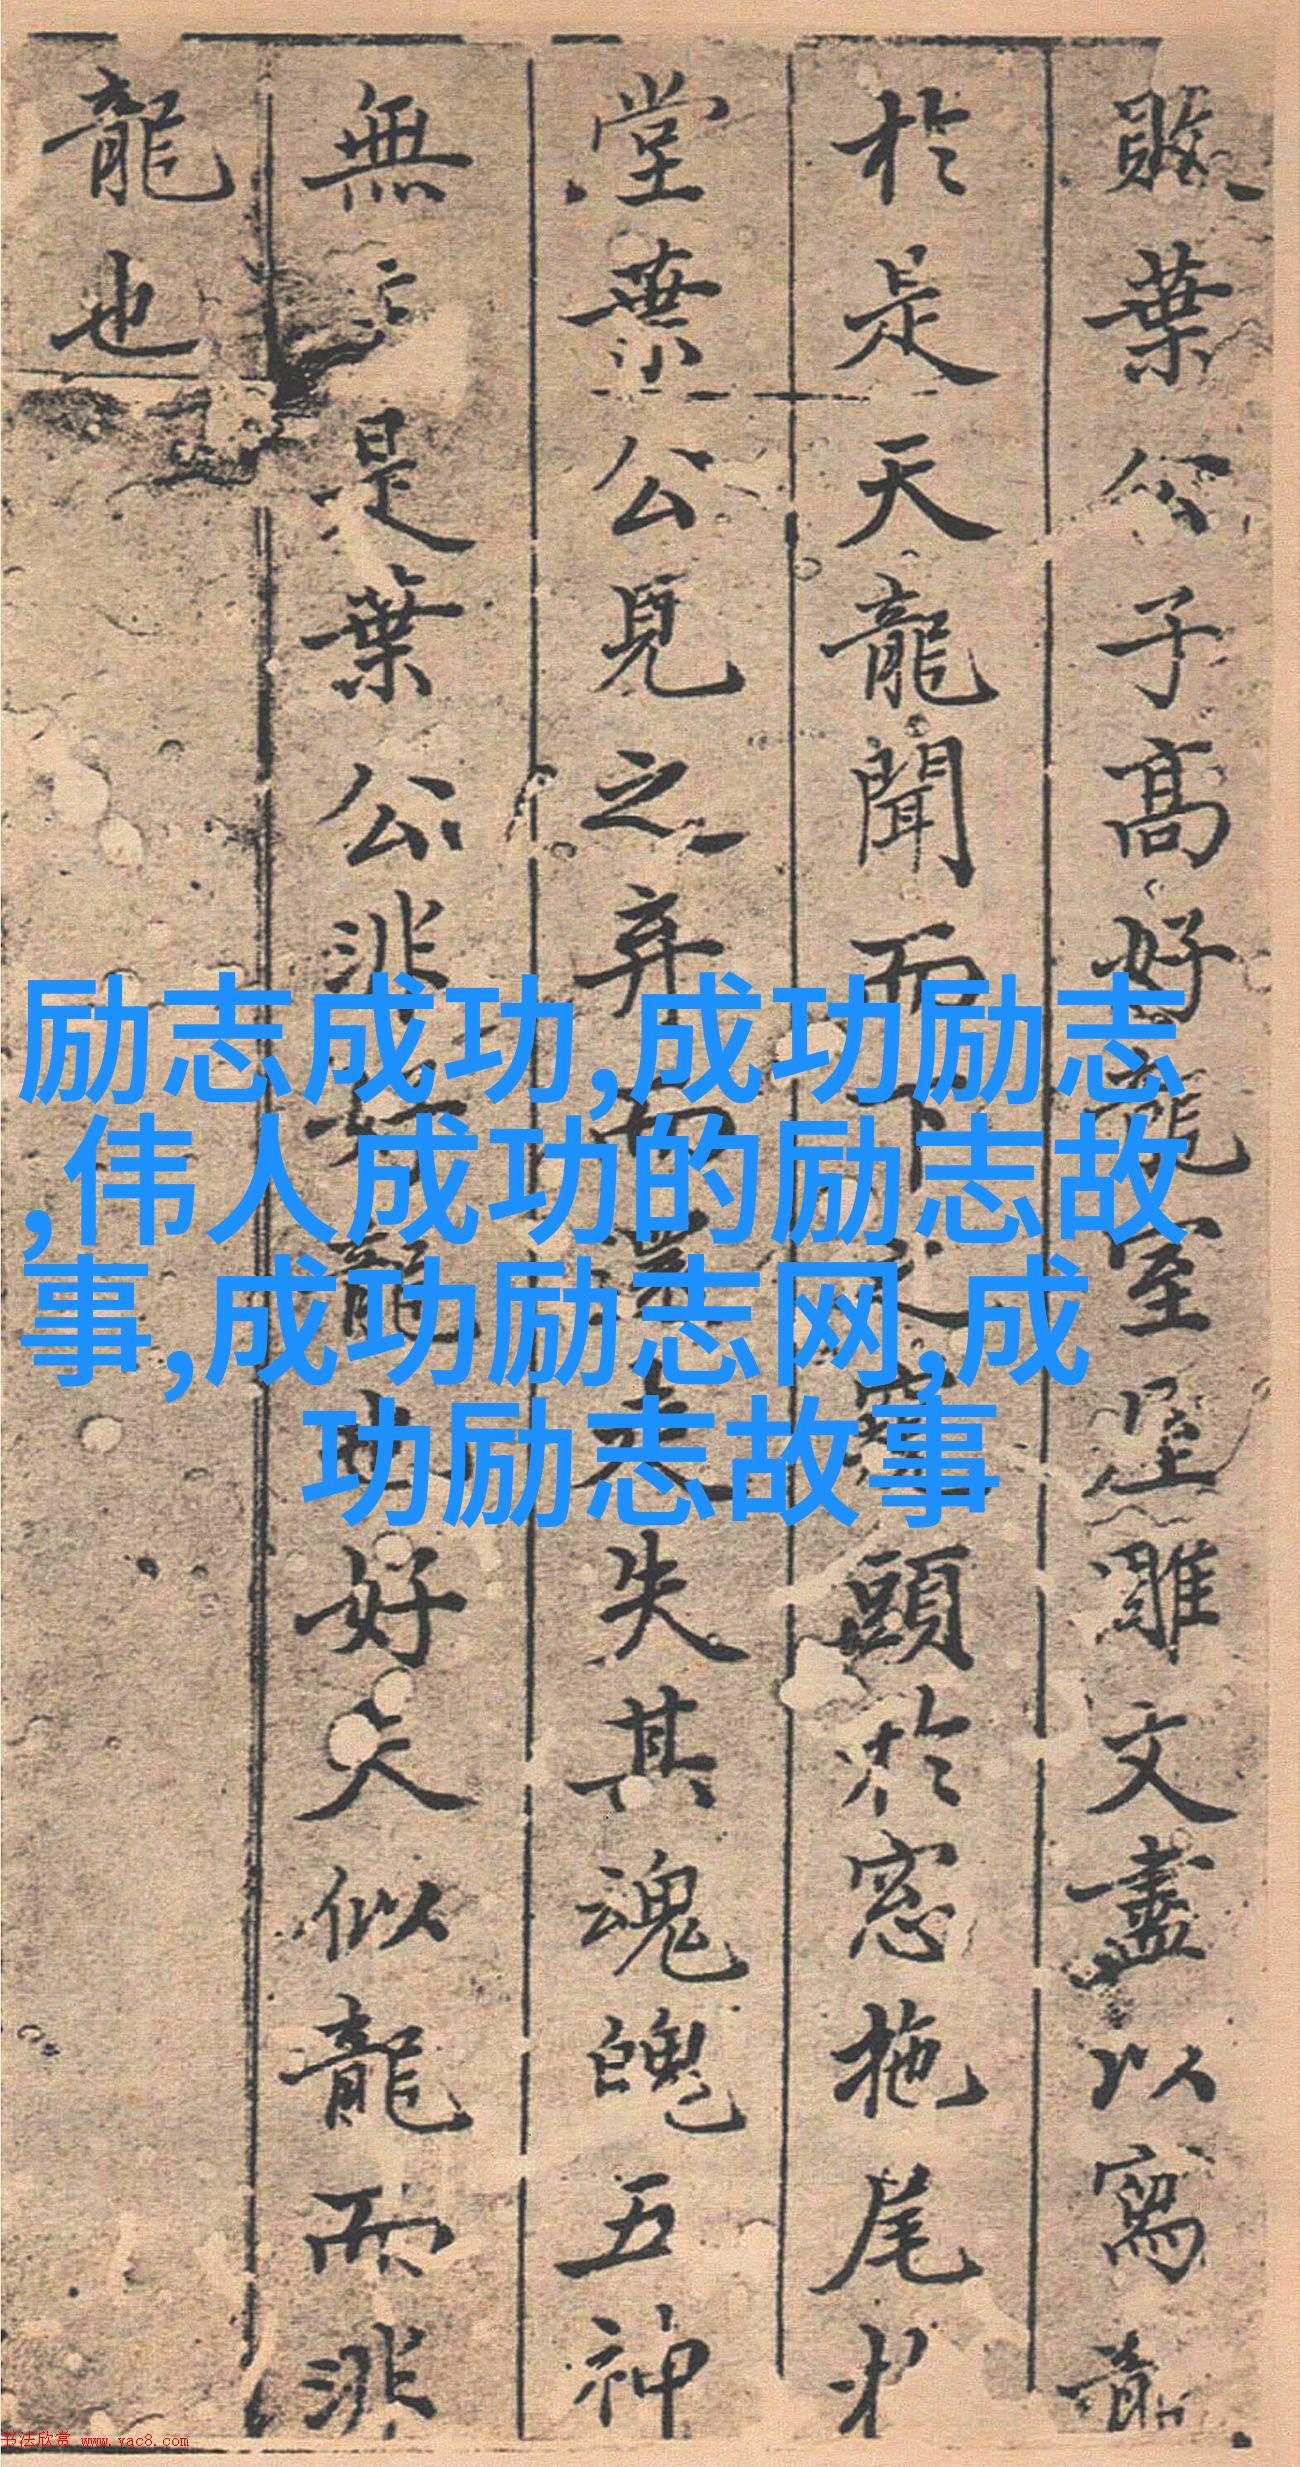 敗葉公子高好龍室屋雕文盡以寫龍
於是天龍聞而下之窺頭於窓拖尾
堂葉公見之弃而還走失其魂魄五神
無主是葉公非好龍也好夫似龍而非
龍也
励志成功,成功励志
,伟人成功的励志故
事,成功励志网,成
功励志故事
书法欣赏 www.yac8.com